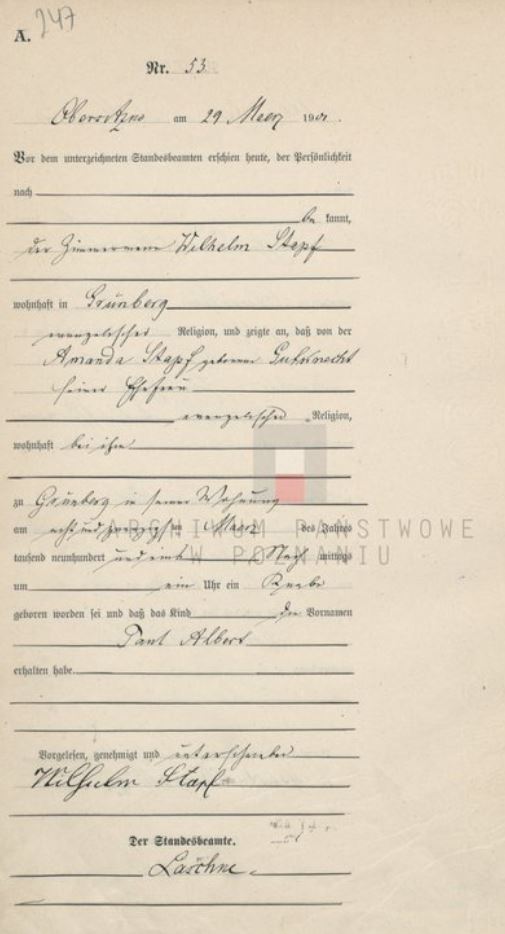 A. 247
Nr. 53
Obersitzko am 29 Maerz 1901.
Vor dem unterzeichneten Standesbeamten erschien heute, der Persönlichkeit
nach
be kannt,
der Zimmermann Wilhelm Stapf
wohnhaft in Grünberg
evangelischer Religion, und zeigte an, daß von der
Amanda Stapf geborene Gutknecht
seiner Ehefrau
evangelischer Religion,
wohnhaft bei ihm
zu Grünberg in seiner Wohnung
am acht und zwanzigsten Maerz des Jahres
tausend neunhundert und eins Nach mittags
um ein Uhr ein Knabe
geboren worden sei und daß das Kind die Vornamen
Paul Albert
erhalten habe.
Vorgelesen, genehmigt und unterschrieben
Wilhelm Stapf
Der Standesbeamte.
Laschke.
ARCHIWUM PAŃSTWOWE
W POZNANIU